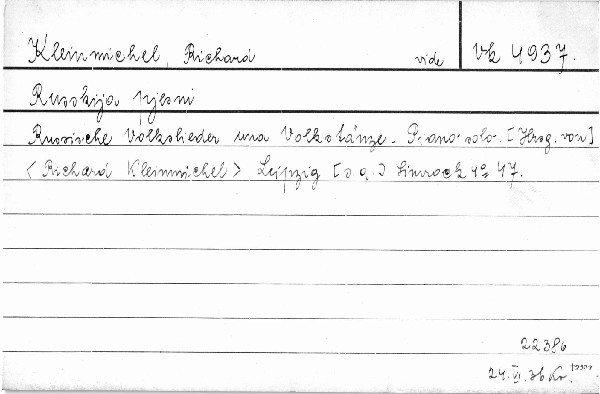 Kleinmichel, Richard vide Vk 4937.
Russkija pjesni
Russische Volkslieder und Volkstänze. Piano-solo. [Hrsg. von]
<Richard Kleinmichel> Leipzig [s a.] Simrock 4° 47.
22386
24. VI. 36